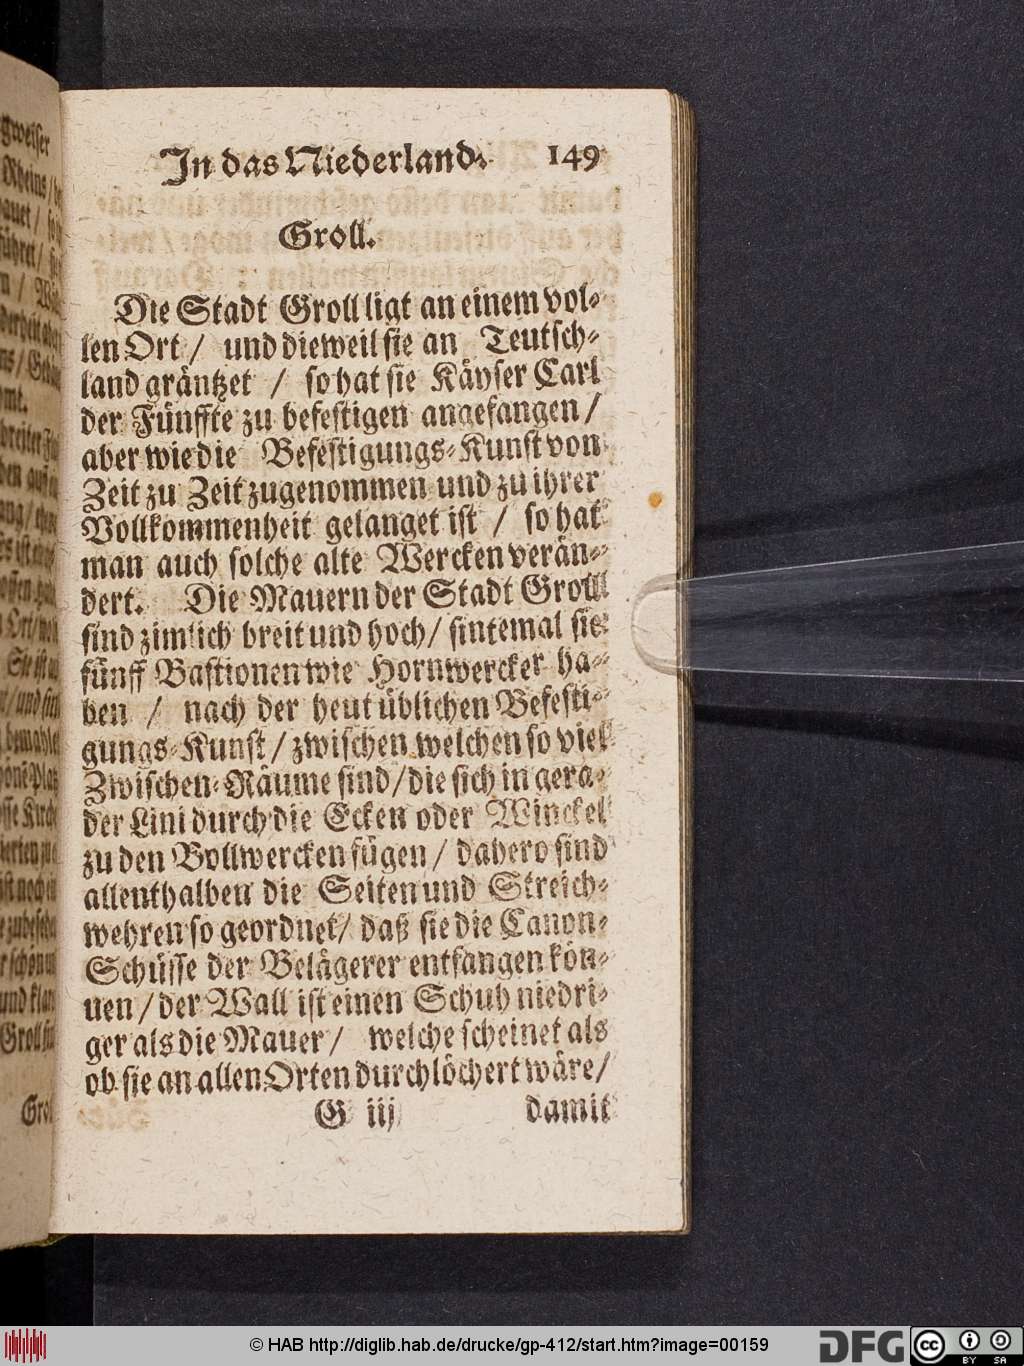 In das Niederland. 149
Groll.
Die Stadt Groll ligt an einem vol-
len Ort / und dieweil sie an Teutsch-
land gräntzet / so hat sie Käyser Carl
der Fünffte zu befestigen angefangen /
aber wie die Befestigungs-Kunst von
Zeit zu Zeit zugenommen und zu ihrer
Vollkommenheit gelanget ist / so hat
man auch solche alte Wercken verän-
dert. Die Mauern der Stadt Groll
sind zimlich breit und hoch / sintemal sie
fünff Bastionen wie Hornwercker ha-
ben / nach der heut üblichen Befesti-
gungs-Kunst / zwischen welchen so viel
Zwischen-Räume sind / die sich in gera-
der Lini durch die Ecken oder Winckel
zu den Bollwercken fügen / dahero sind
allenthalben die Seiten und Streich-
wehren so geordnet / daß sie die Canon-
Schüsse der Belägerer entfangen kön-
nen / der Wall ist einen Schuh niedri-
ger als die Mauer / welche scheinet als
ob sie an allen Orten durchlöchert wäre /
G iij damit
© HAB http://diglib.hab.de/drucke/gp-412/start.htm?image=00159
DFG
cc BY SA